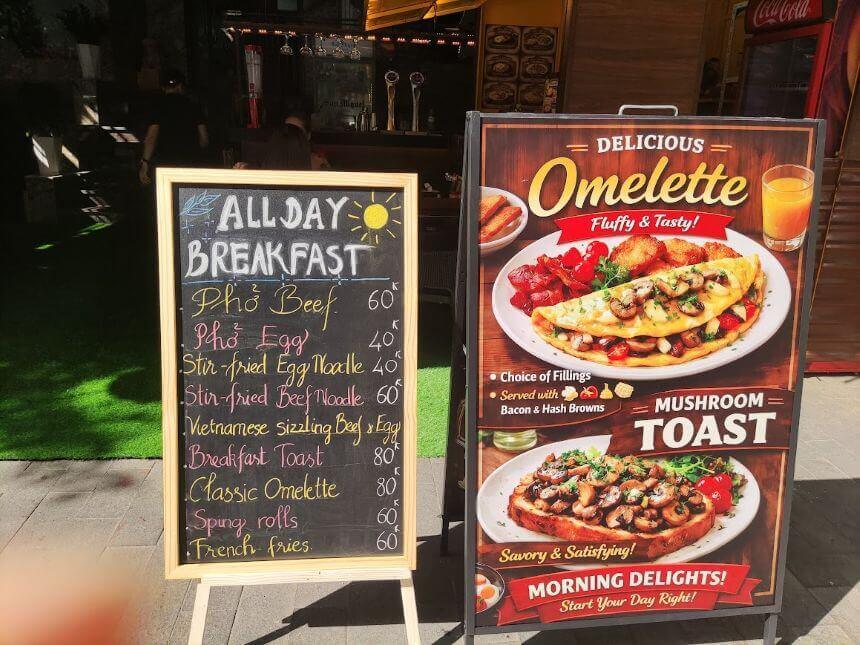 ALL DAY
BREAKFAST
Phở² Beef 60K
Phở² Egg 40K
Stir-fried Egg Noodle 40K
Stir-fried Beef Noodle 60K
Vietnamese sizzling Beef & Egg
Breakfast Toast 80K
Classic Omelette 80
Sping rolls 60K
French-fries. 60K
San Miguel
Coca-Cola
DELICIOUS
Omelette
Fluffy & Tasty!
• Choice of Fillings
• Served with
Bacon & Hash Browns
MUSHROOM
TOAST
Savory & Satisfying!
MORNING DELIGHTS!
Start Your Day Right!